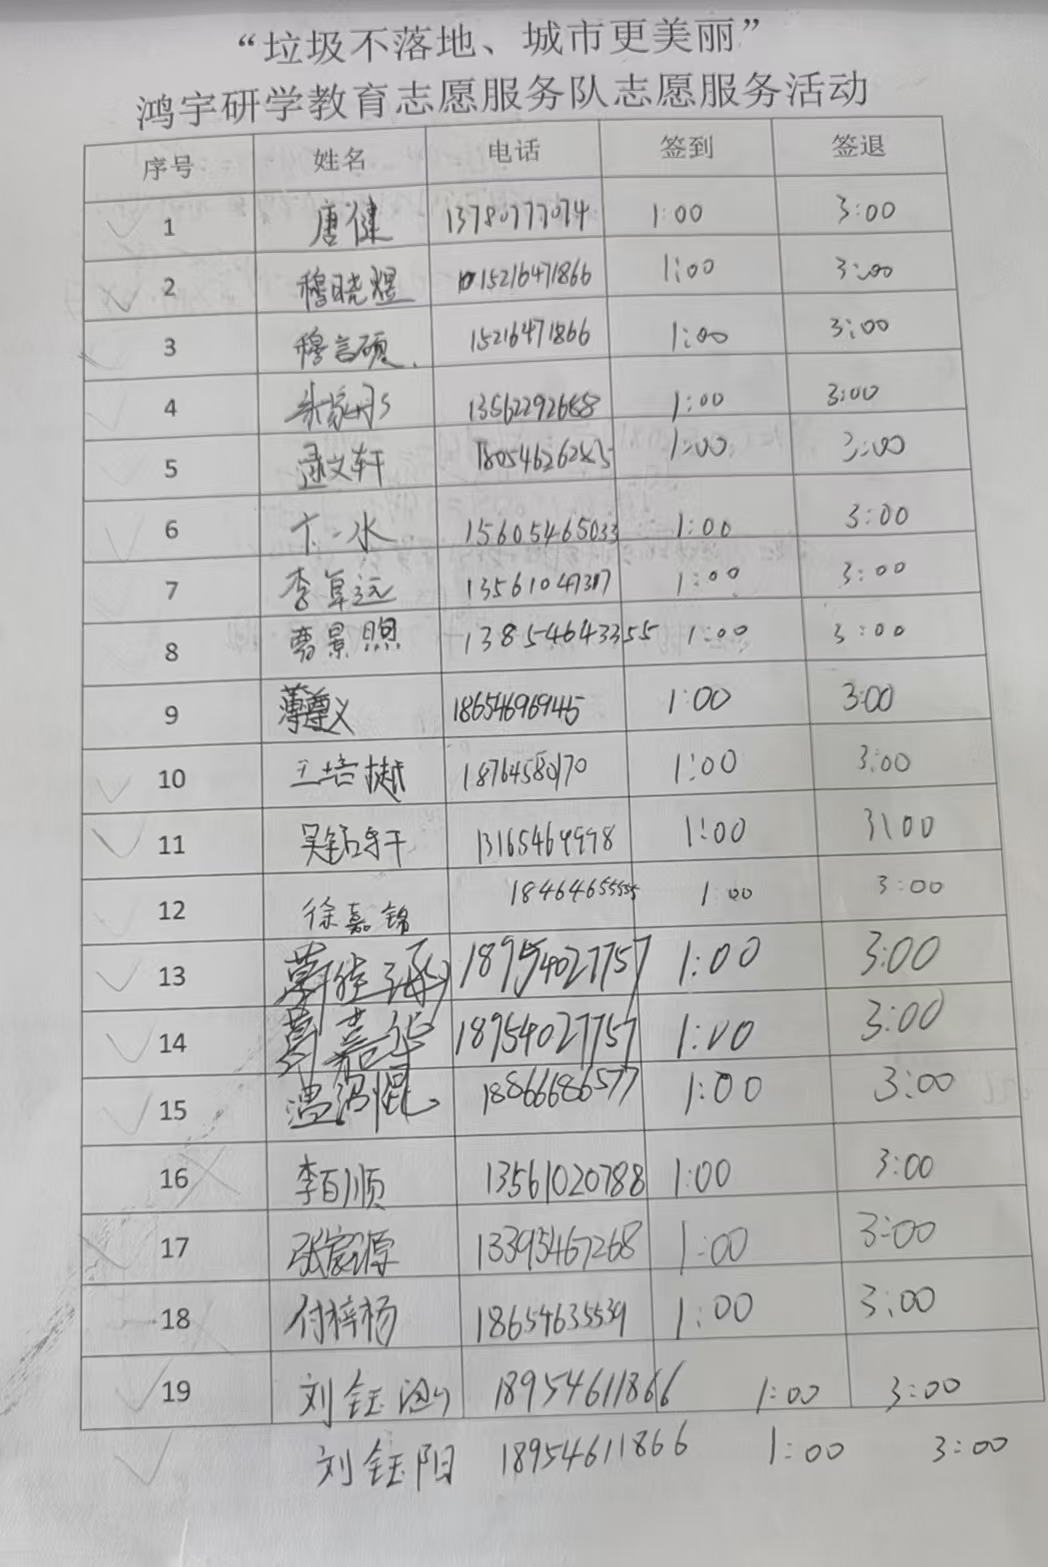 “垃圾不落地、城市更美丽”
鸿宇研学教育志愿服务队志愿服务活动
序号 姓名 电话 签到 签退
1 唐健 13780777074 1:00 3:00
2 穆晓煜 15216471866 1:00 3:00
3 穆言硕 15216471866 1:00 3:00
4 1:00 3:00
5 文轩 1:00 3:00
6 卞一水 15605465033 1:00 3:00
7 李卓远 1:00 3:00
8 曹景照 13854643355 1:00 3:00
9 薄尊义 1:00 3:00
10 王培 1:00 3:00
11 吴 1:00 3:00
12 徐嘉锦 18464655555 1:00 3:00
13 18954027757 1:00 3:00
14 嘉华 18954027757 1:00 3:00
15 18866686577 1:00 3:00
16 李百顺 13561020788 1:00 3:00
17 张家源 13395467268 1:00 3:00
18 付梓杨 18654635539 1:00 3:00
19 刘钰 18954611866 1:00 3:00
刘钰阳 18954611866 1:00 3:00